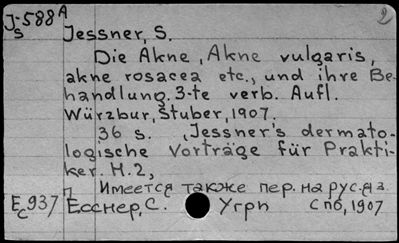 J-588 A
s
2
Jessner, S.
Die Akne, Akne vulgaris,
akne rosacea etc., und ihre Be-
handlung. 3-te verb. Aufl.
Würzbur, Stuber, 1907.
36 s. Jessner's dermato-
logische Vorträge für Prakti-
ker. H. 2,
Имеется также пер. на рус. яз.
Е 937 П Есснер, С. Угри СПб, 1907
с